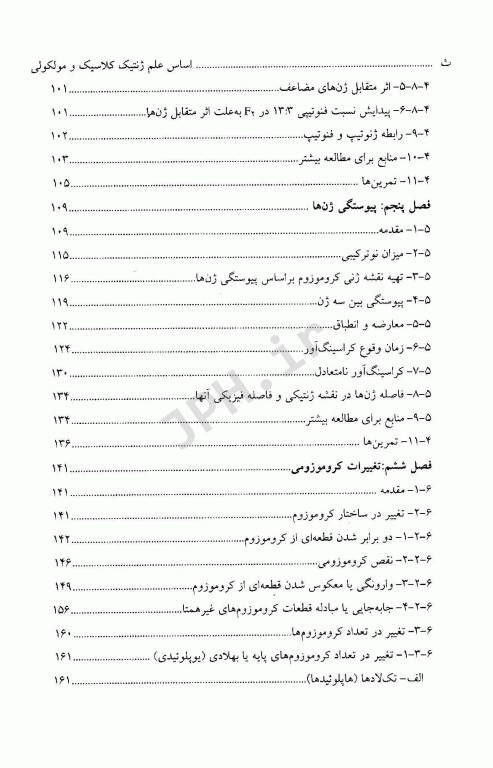 ث ........ اساس علم ژنتیک کلاسیک و مولکولی
۴-۸-۵- اثر متقابل ژن‌های مضاعف........۱۰۱
۴-۸-۶- پیدایش نسبت فنوتیپی ۱۳:۳ در F۲ به‌علت اثر متقابل ژن‌ها........۱۰۱
۴-۹- رابطه ژنوتیپ و فنوتیپ........۱۰۲
۴-۱۰- منابع برای مطالعه بیشتر........۱۰۳
۴-۱۱- تمرین‌ها ........۱۰۵
فصل پنجم: پیوستگی ژن‌ها ........۱۰۹
۵-۱- مقدمه........۱۰۹
۵-۲- میزان نوترکیبی........۱۱۵
۵-۳- تهیه نقشه ژنی کروموزوم براساس پیوستگی ژن‌ها........۱۱۶
۵-۴- پیوستگی بین سه ژن........۱۱۹
۵-۵- معارضه و انطباق........۱۲۲
۵-۶- زمان وقوع کراسینگ‌آور........۱۲۴
۵-۷- کراسینگ‌آور نامتعادل........۱۳۰
۵-۸- فاصله ژن‌ها در نقشه ژنتیکی و فاصله فیزیکی آنها........۱۳۴
۵-۹- منابع برای مطالعه بیشتر........۱۳۴
۴-۱۱- تمرین‌ها ........۱۳۶
فصل ششم: تغییرات کروموزومی........۱۴۱
۶-۱- مقدمه ........۱۴۱
۶-۲- تغییر در ساختار کروموزوم........۱۴۱
۶-۲-۱- دو برابر شدن قطعه‌ای از کروموزوم........۱۴۲
۶-۲-۲- نقص کروموزومی........۱۴۶
۶-۲-۳- وارونگی یا معکوس شدن قطعه‌ای از کروموزوم........۱۴۹
۶-۲-۴- جابه‌جایی یا مبادله قطعات کروموزوم‌های غیرهمتا........۱۵۶
۶-۳- تغییر در تعداد کروموزوم‌ها........۱۶۰
۶-۳-۱- تغییر در تعداد کروموزوم‌های پایه یا بهلادی (یوپلوئیدی) ........۱۶۱
الف- تک‌لادها (هاپلوئیدها)........۱۶۱
JPH.ir